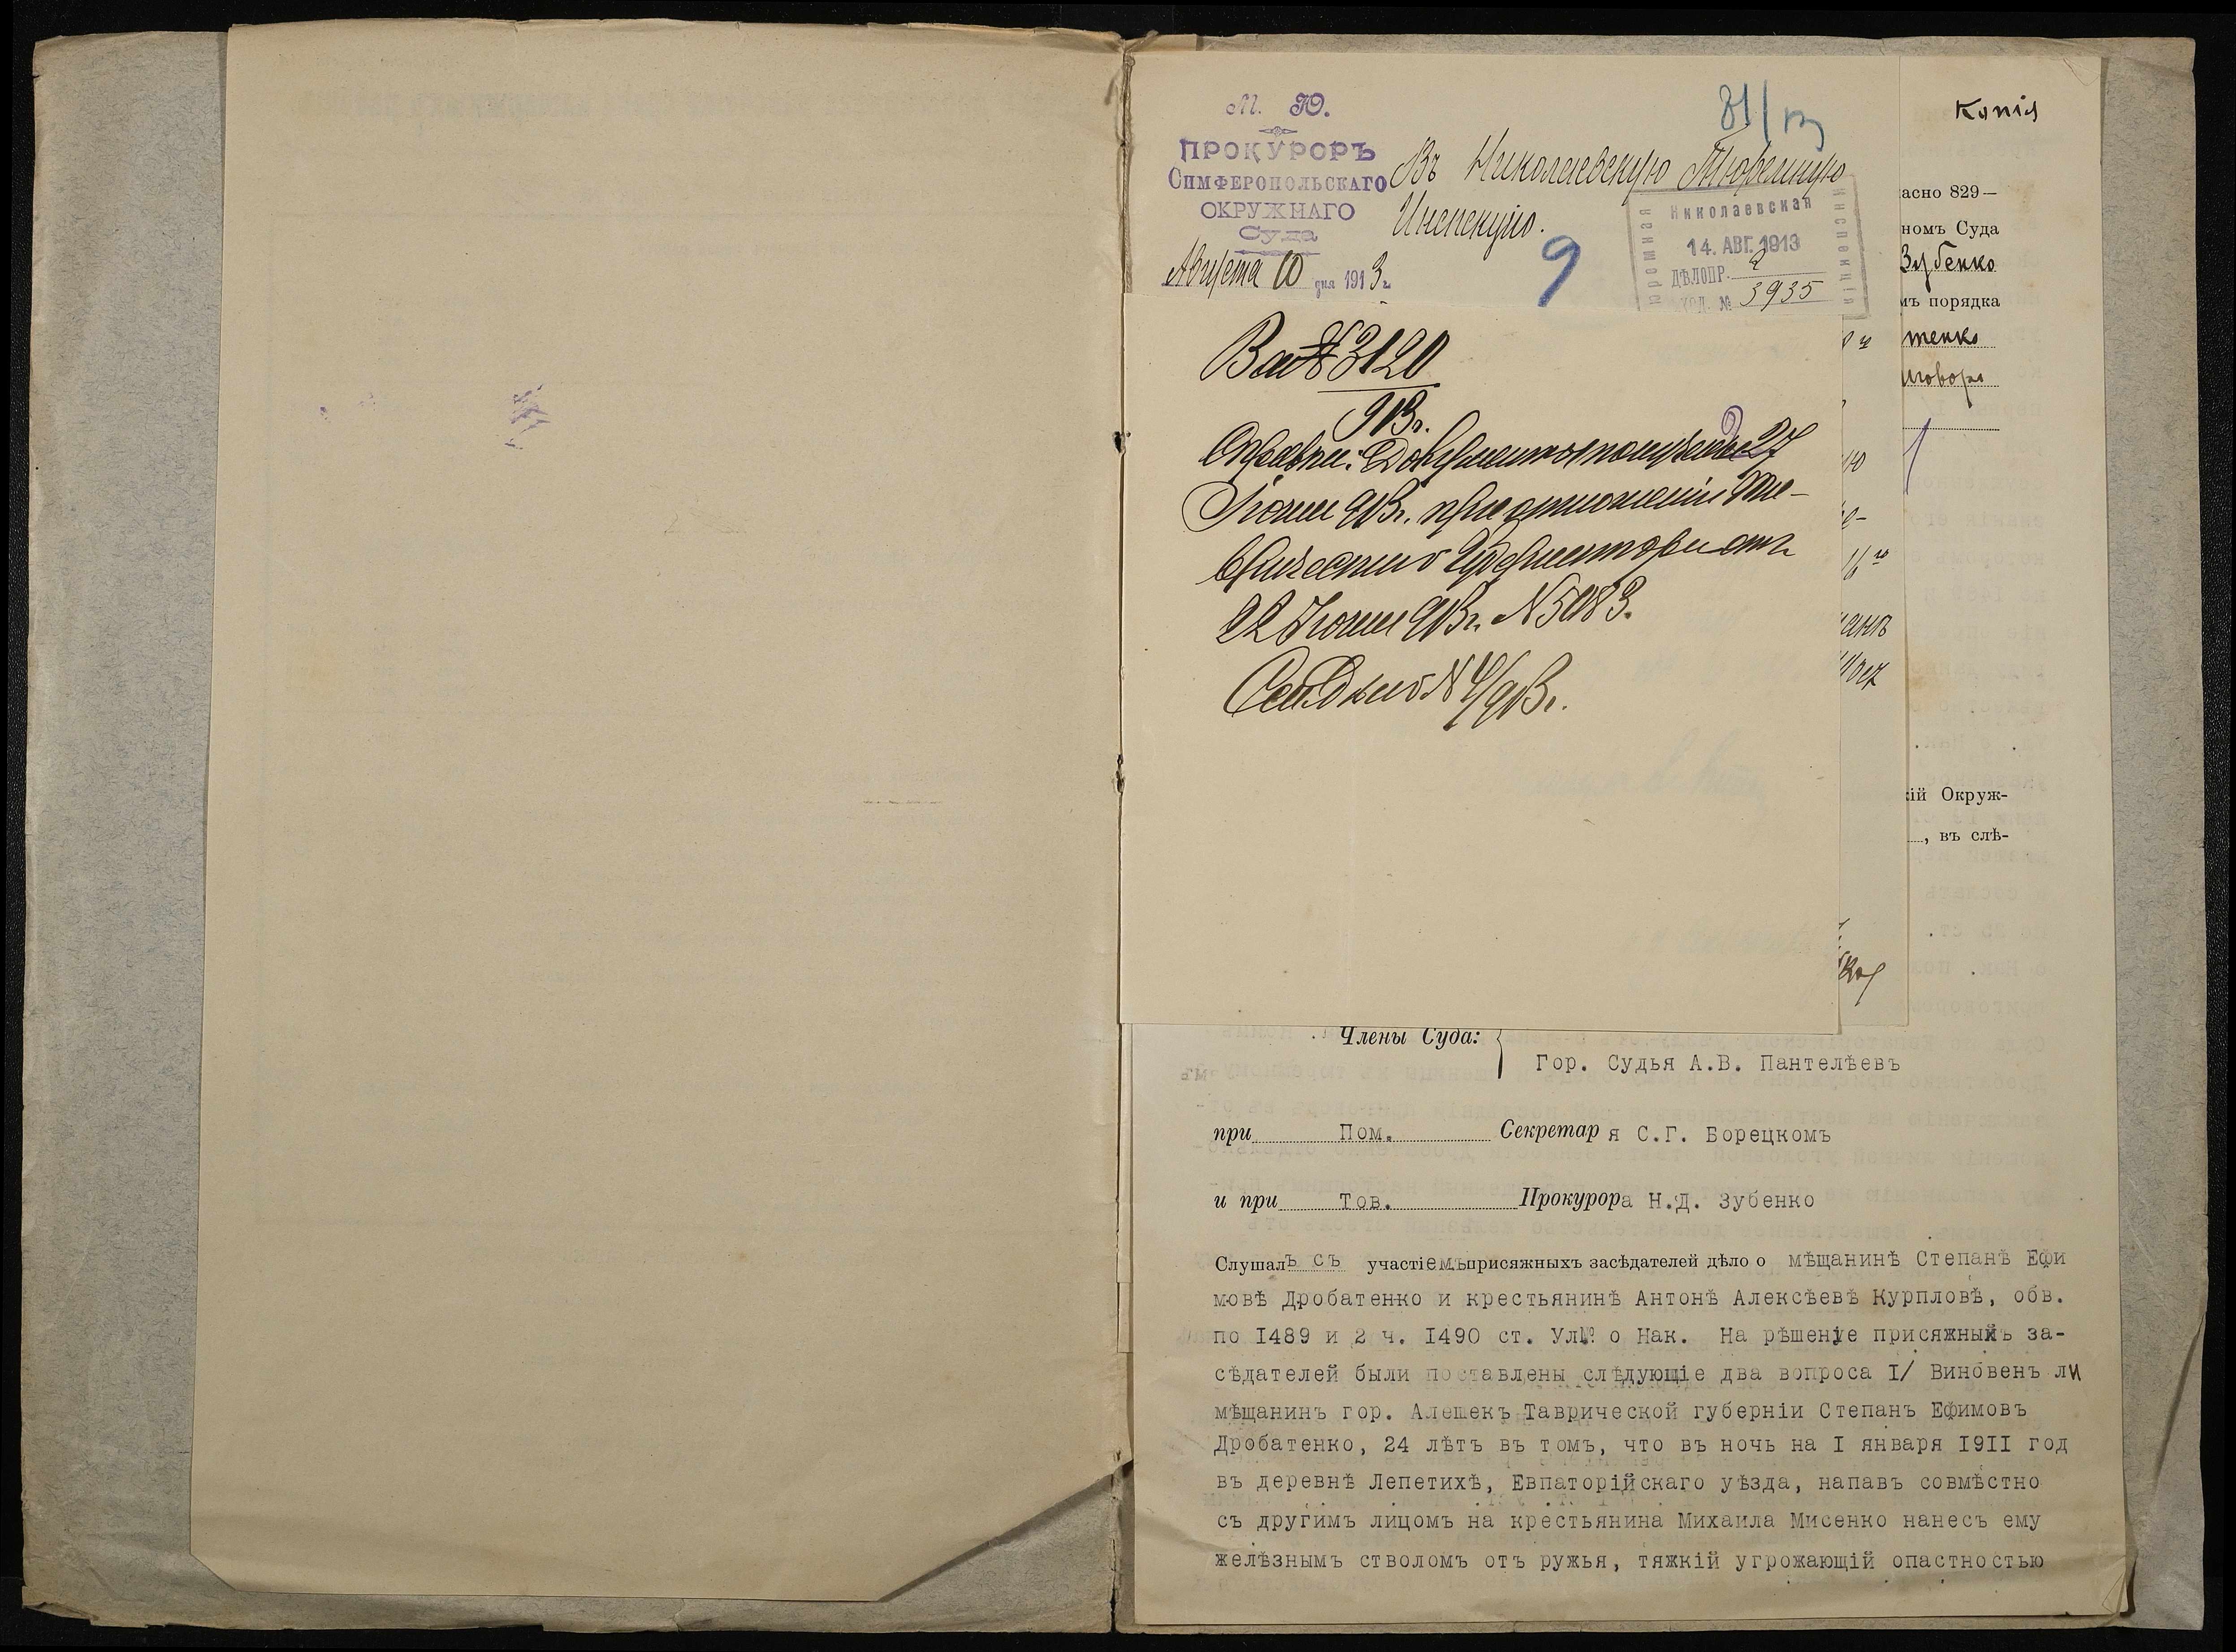 М. Ю.
ПРОКУРОРЪ
СИМФЕРОПОЛЬСКАГО
ОКРУЖНАГО
Суда
Августа 10 дня 1913 г.
81/13
Въ Николаевскую Тюремную
Инспекцію.
9
Николаевская
юремная
инспекція
14. АВГ. 1913
ДѢЛОПР. 2
ХОД. № 3935
Вх № 3120
913 г.
Справка: Документъ полученъ 27
Іюня 913 г. при отношеніи Та-
врическаго Губернатора отъ
22 Іюня 913 г. № 5083.
Копія
асно 829—
номъ Суда
Зубенко
мъ порядка
тенко
иговора
ій Окруж-
, въ слѣ-
Члены Суда:
Гор. Судья А.В. Пантелѣевъ
при Пом. Секретаря С.Г. Борецкомъ
и при Тов. Прокурора Н.Д. Зубенко
Слушалъ съ участіемъ присяжныхъ засѣдателей дѣло о мѣщанинѣ Степанѣ Ефи
мовѣ Дробатенко и крестьянинѣ Антонѣ Алексѣевѣ Курпловѣ, обв.
по I489 и 2 ч. I490 ст. Ул. о Нак. На рѣшеніе присяжныхъ за-
сѣдателей были поставлены слѣдующіе два вопроса I/ Виновенъ ли
мѣщанинъ гор. Алешекъ Таврической губерніи Степанъ Ефимовъ
Дробатенко, 24 лѣтъ въ томъ, что въ ночь на I января I9II год
въ деревнѣ Лепетихѣ, Евпаторійскаго уѣзда, напавъ совмѣстно
съ другимъ лицомъ на крестьянина Михаила Мисенко нанесъ ему
желѣзнымъ стволомъ отъ ружья, тяжкій угрожающій опастностью